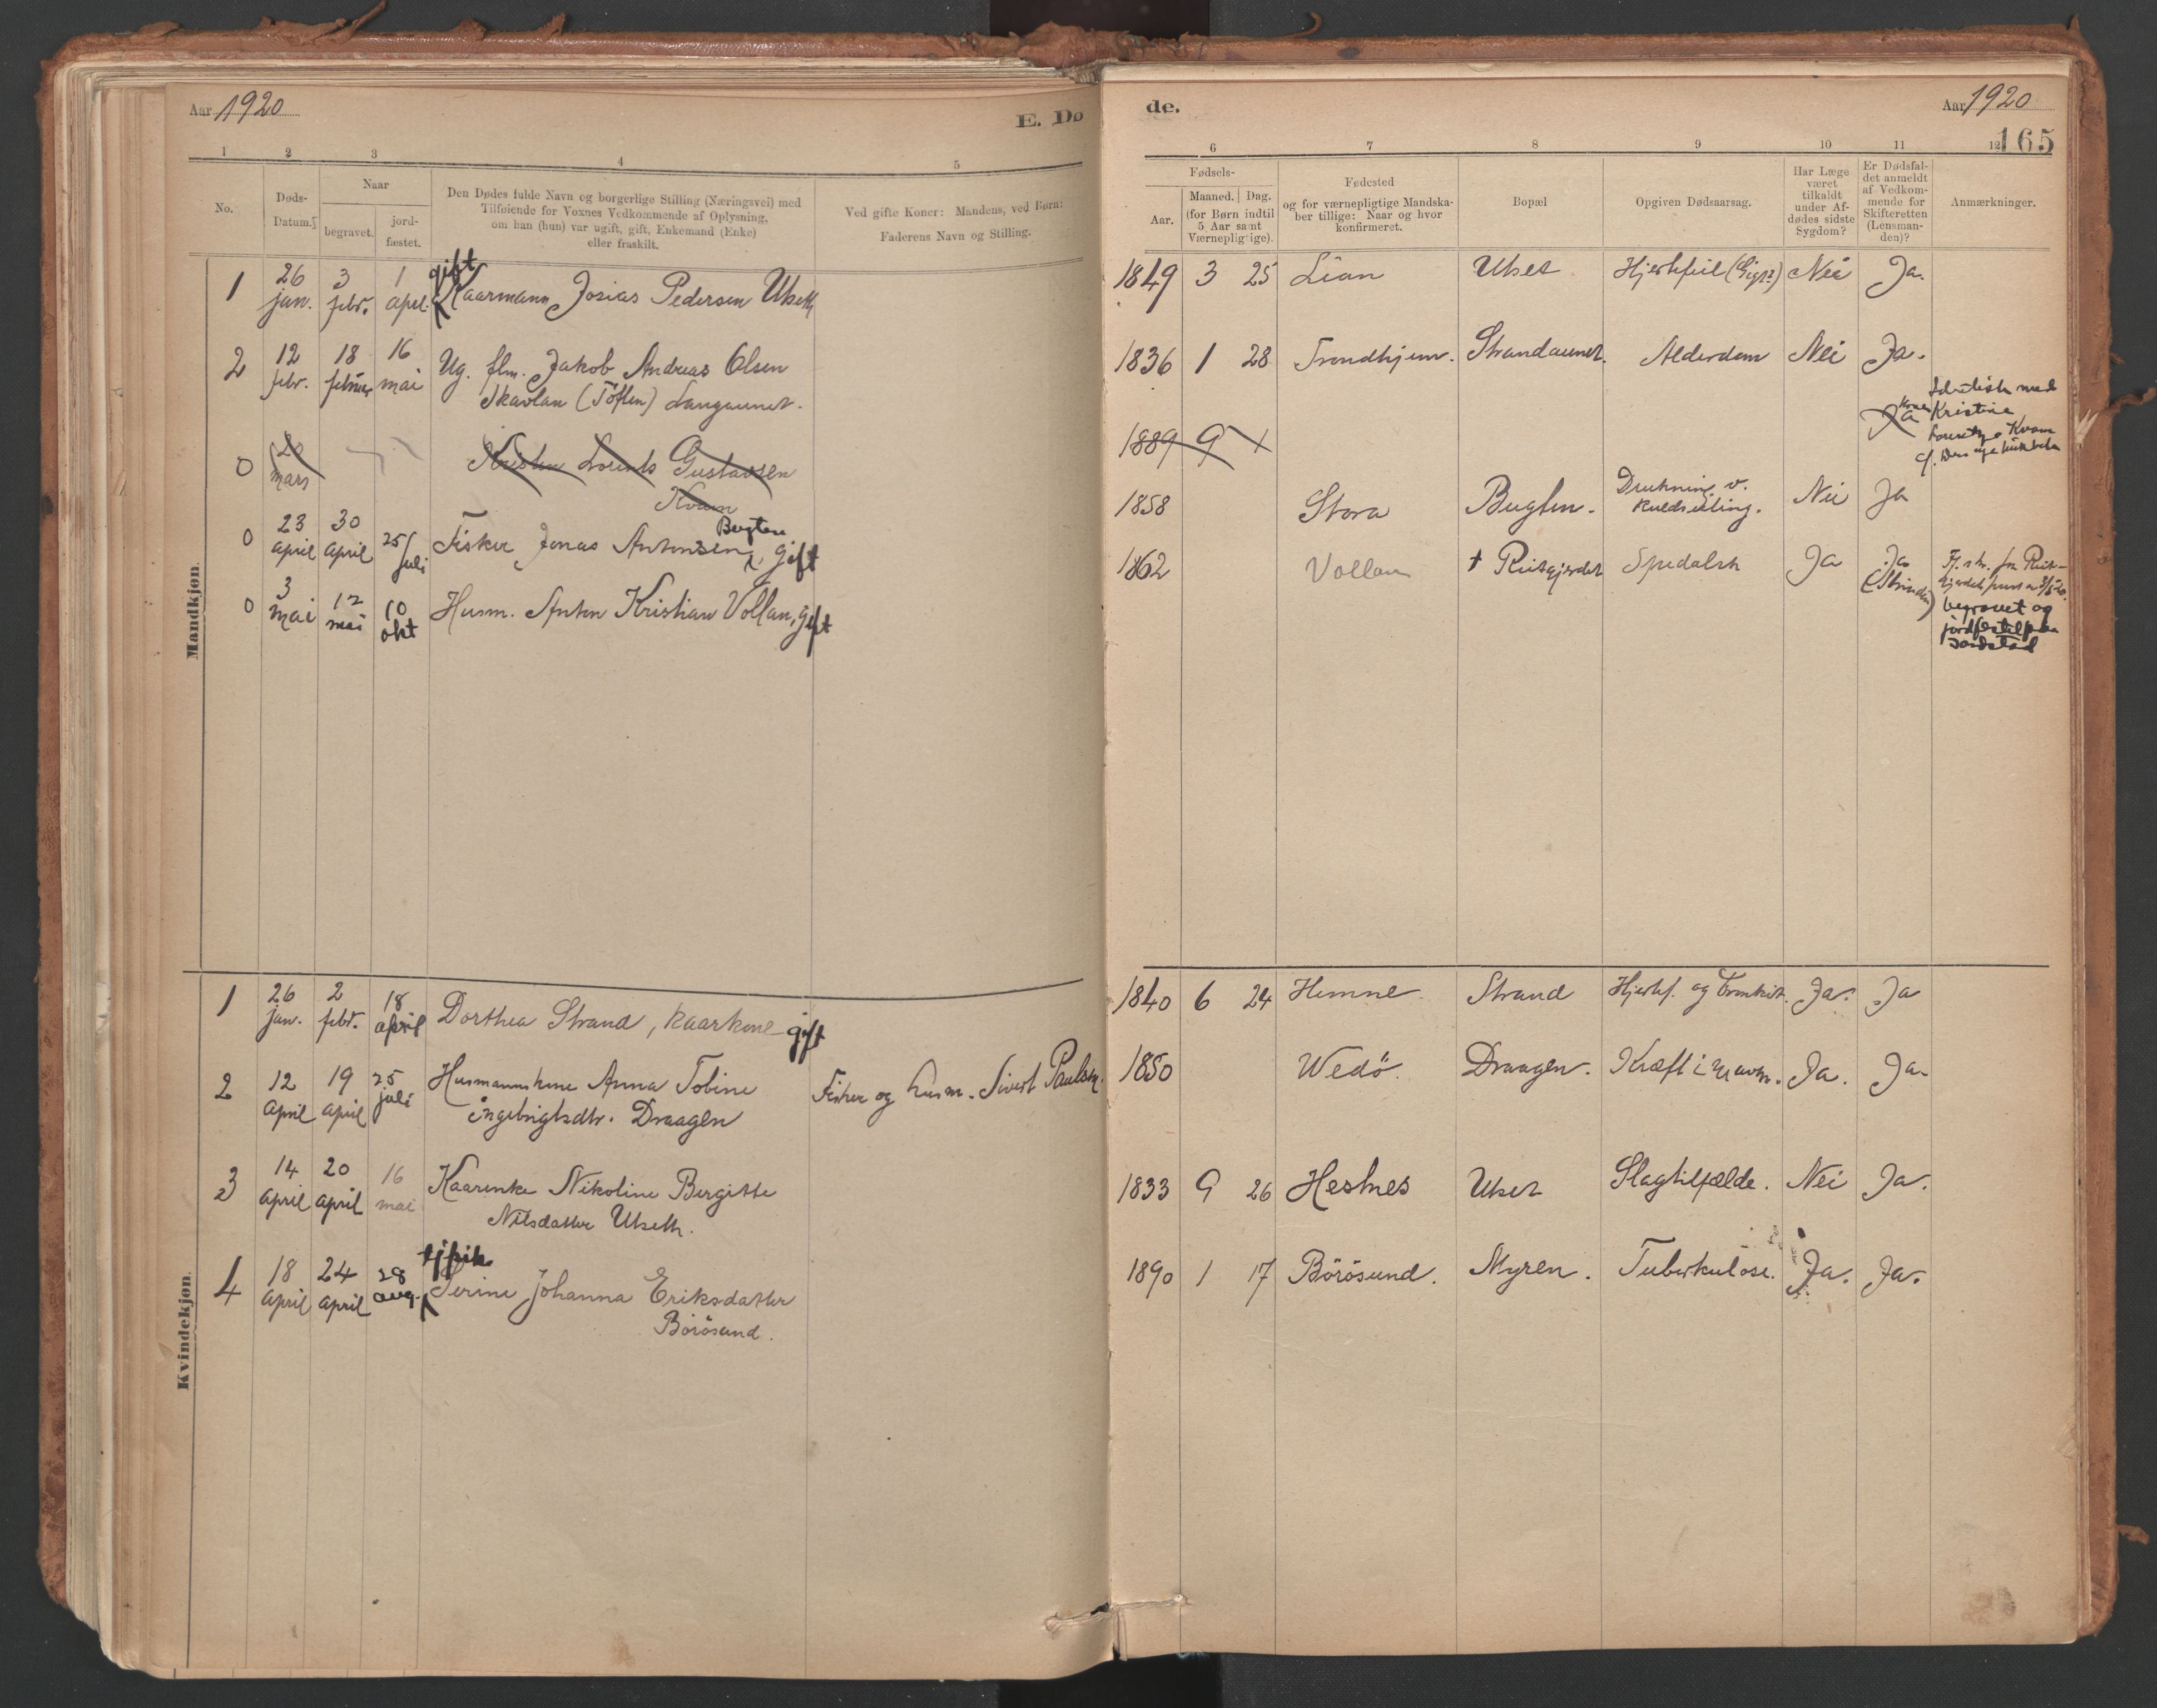 Aar 1920
E. Dø
de.
Aar 1920
165
1 2 3 4 5
6 7 8 9 10 11 12
No.
Døds-
Datum.
Naar
begravet.
jord-
fæstet.
Den Dødes fulde Navn og borgerlige Stilling (Næringsvei) med
Tilføiende for Voxnes Vedkommende af Oplysning,
om han (hun) var ugift, gift, Enkemand (Enke)
eller fraskilt.
Ved gifte Koner: Mandens, ved Børn:
Faderens Navn og Stilling.
Fødsels-
Aar.
Maaned. Dag.
(for Børn indtil
5 Aar samt
Værnepligtige).
Fødested
og for værnepligtige Mandska-
ber tillige: Naar og hvor
konfirmeret.
Bopæl
Opgiven Dødsaarsag.
Har Læge
været
tilkaldt
under Af-
dødes sidste
Sygdom?
Er Dødsfal-
det anmeldt
af Vedkom-
mende for
Skifteretten
(Lensman-
den)?
Anmærkninger.
Mandkjøn.
gift
1 26 jan. 3 febr. 1 april Kaarmann Josias Pedersen Useth
1849 3 25 Lian Uset Hjertefeil Nei Ja.
2 12 febr. 18 februar 16 mai Ug. flm. Jakob Andreas Olsen
Skavlan (Töften) Langaunet.
1836 1 28 Trondhjem. Strandaunet. Alderdom Nei Ja.
0 20 mars Kristen Lorents Gustavsen
Kvam
1889 9 Ja
Identisk med
Kristine
Kvam
0 23 april 30 april 25 juli Fisker Jonas Antonsen Bugten, gift
1858 Stora Bugten. Drukning v. kuldseiling. Nei Ja
0 3 mai 12 mai 10 okt Husm. Anton Kristian Vollan, gift
1862 Vollan † Reitgjerdet Spedalsk Ja Ja
(Strinden)
begravet og
jordfestet paa
Kvindekjøn.
1 26 jan. 2 febr. 18 april Dorthea Strand, kaarkone gift
1840 6 24 Hemne. Strand Hjertef. og Bronkit. Ja. Ja
2 12 april 19 april 25 juli Husmannskone Anna Tobine
Ingebrigtsdtr. Draagen
Fisker og husm. Sivert Paulsen.
1850 Wedö. Draagen. Kræft i maven. Ja. Ja.
3 14 april 20 april 16 mai Kaarenke Nikoline Bergitte
Nilsdatter Useth.
1833 9 26 Hestnes Uset Slagtilfælde. Nei Ja.
4 18 april 24 april 28 aug. Serine Johanna Eriksdatter
Börösund.
1890 1 17 Börösund. Myren. Tuberkulose. Ja. Ja.